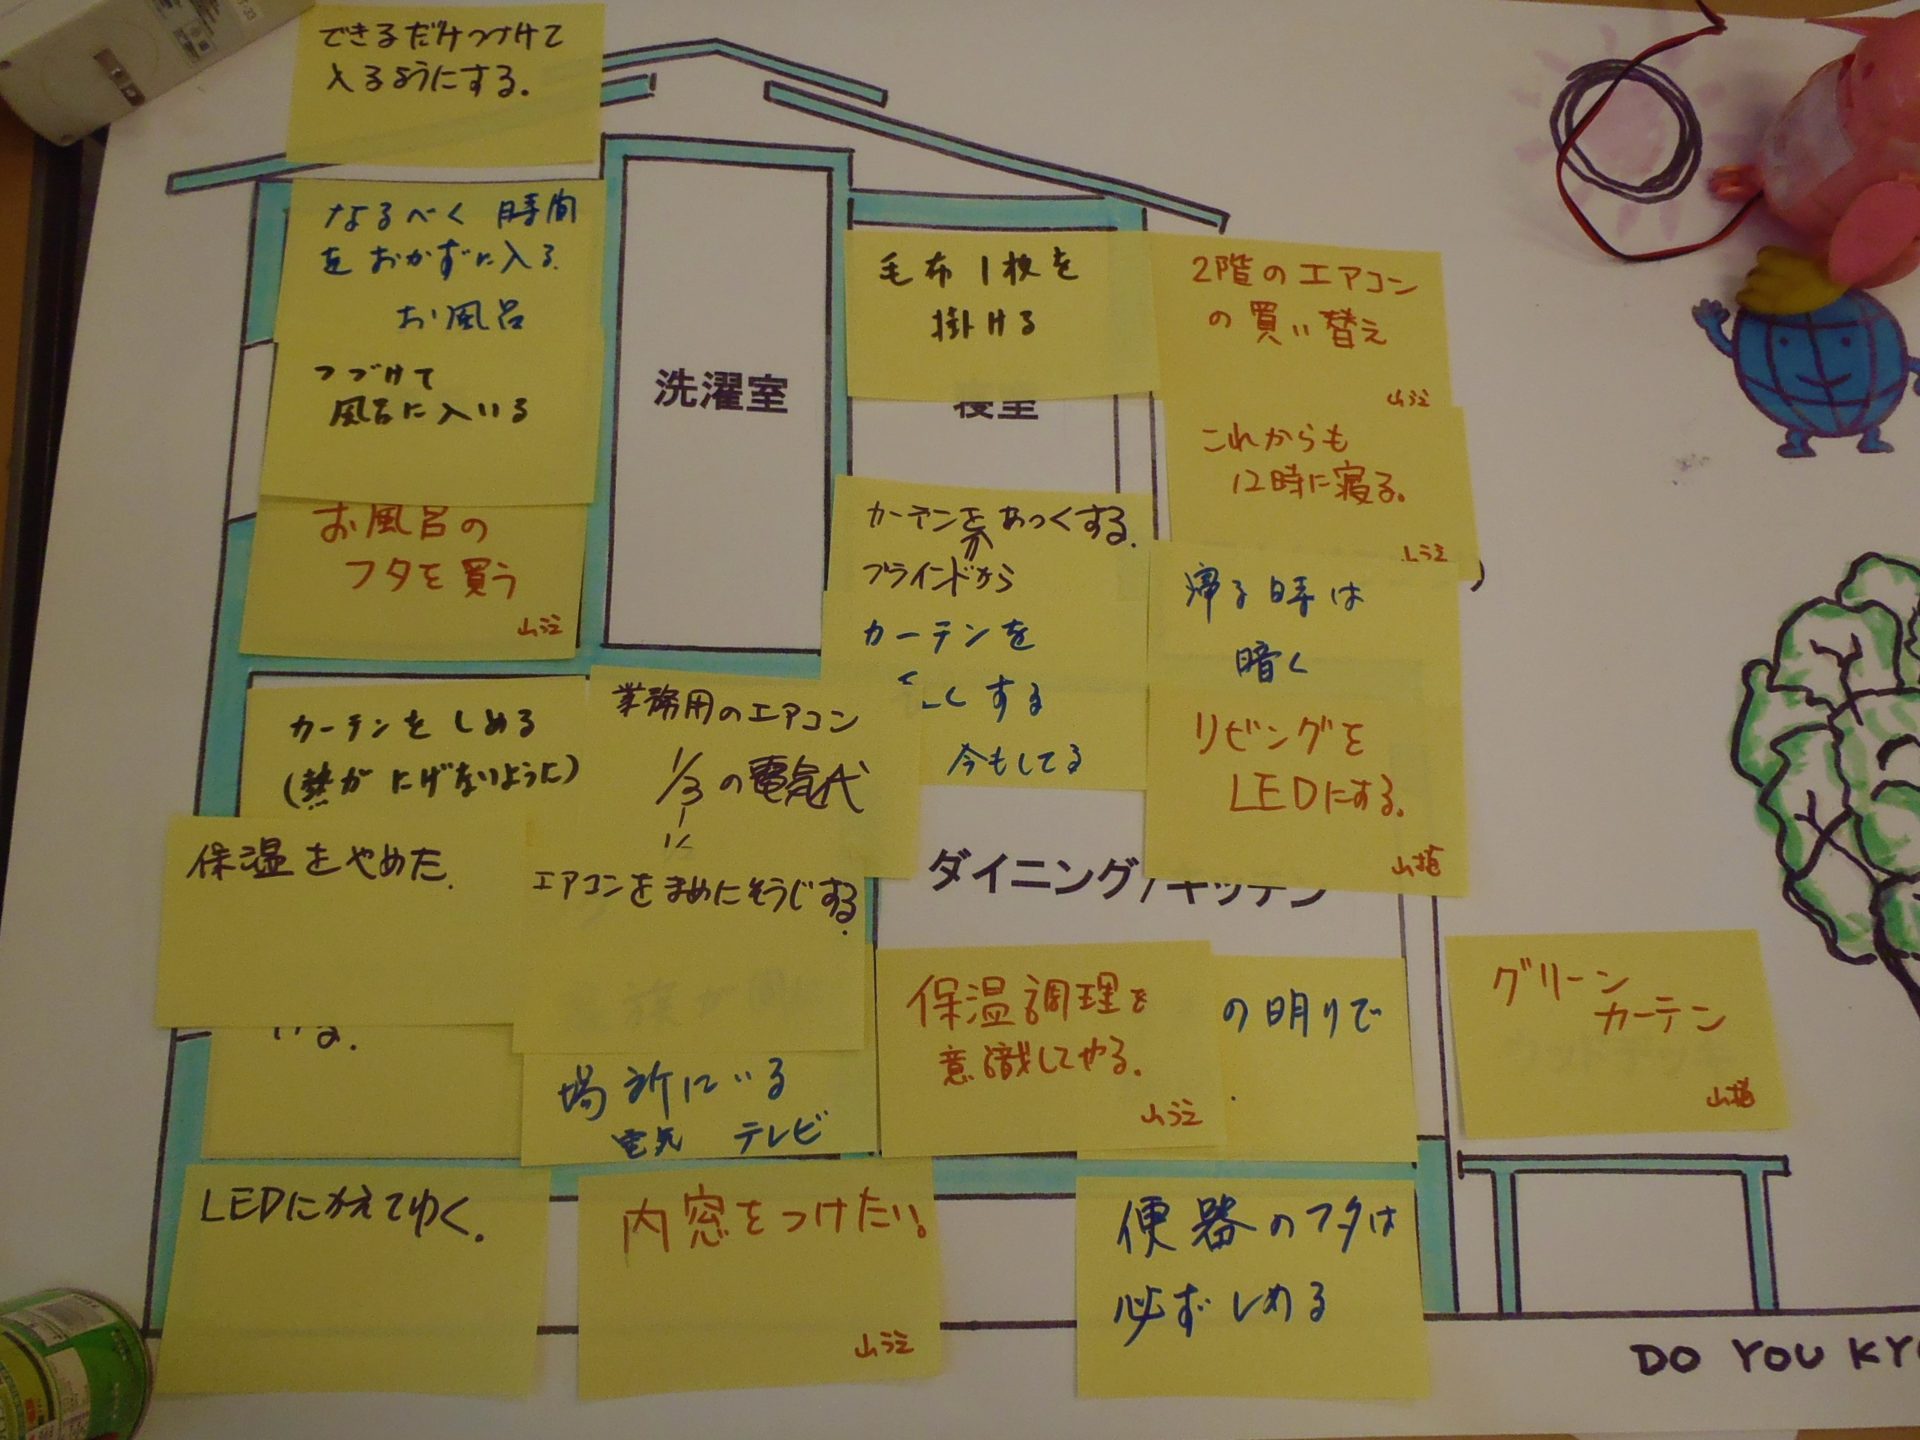 できるだけつづけて
入るようにする。
なるべく 時間
をおかずに入る
お風呂
つづけて
風呂に入いる
お風呂の
フタを買う
洗濯室
毛布1枚を
掛ける
寝室
2階のエアコン
の買い替え
これからも
12時に寝る。
カーテンをあつくする。
ブラインドから
カーテンを
くする
今もしてる
帰る時は
暗く
リビングを
LEDにする。
カーテンをしめる
(熱がにげないように)
業務用のエアコン
1/3の電気代
に
保温をやめた。
エアコンをまめにそうじする。
ダイニング/キッチン
いる。
場所にいる
電気 テレビ
保温調理を
意識してやる。
の明りで
グリーン
カーテン
LEDにかえてゆく。
内窓をつけたい。
便器のフタは
必ずしめる
DO YOU KYO